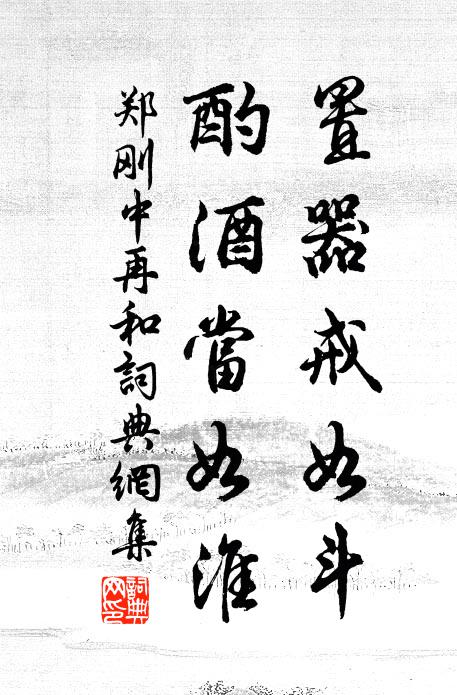 置器戒如斗
酌酒當如淮
郑刚中再和詞典網集
詞典
网印